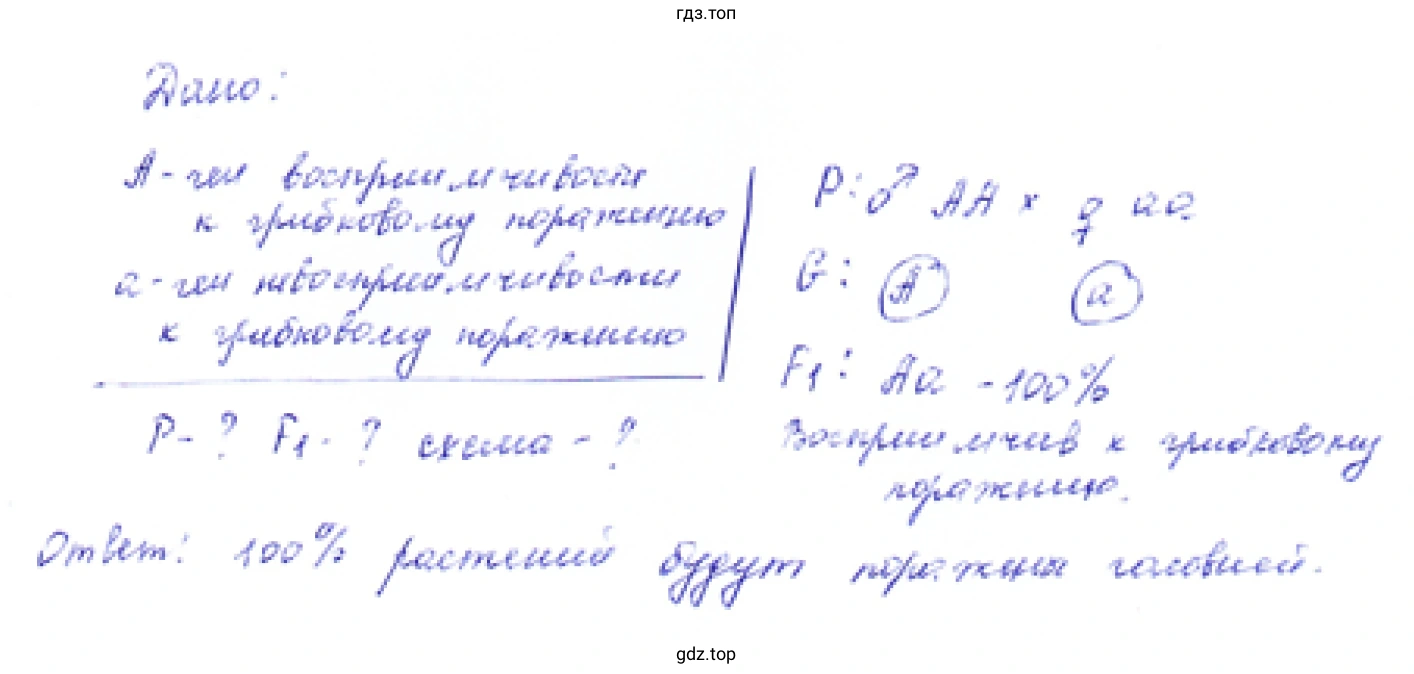 гдз.топ
Дано:
А - ген восприимчивости
к грибковому поражению
а - ген невосприимчивости
к грибковому поражению
Р - ? F1 - ? схема - ?
Р: ♂ АА × ♀ аа
G: А а
F1: Аа - 100%
Восприимчив к грибковому
поражению.
Ответ: 100% растений будут поражены головней.
gdz.top